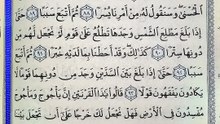 ٱلۡحُسۡنَىٰۖ وَسَنَقُولُ لَهُۥ مِنۡ أَمۡرِنَا يُسۡرٗا ٨٨ ثُمَّ أَتۡبَعَ سَبَبًا ٨٩
حَتَّىٰٓ إِذَا بَلَغَ مَطۡلِعَ ٱلشَّمۡسِ وَجَدَهَا تَطۡلُعُ عَلَىٰ قَوۡمٖ لَّمۡ نَجۡعَل لَّهُم مِّن
دُونِهَا سِتۡرٗا ٩٠ كَذَٰلِكَۖ وَقَدۡ أَحَطۡنَا بِمَا لَدَيۡهِ خُبۡرٗا ٩١ ثُمَّ أَتۡبَعَ
سَبَبًا ٩٢ حَتَّىٰٓ إِذَا بَلَغَ بَيۡنَ ٱلسَّدَّيۡنِ وَجَدَ مِن دُونِهِمَا قَوۡمٗا لَّا
يَكَادُونَ يَفۡقَهُونَ قَوۡلٗا ٩٣ قَالُواْ يَٰذَا ٱلۡقَرۡنَيۡنِ إِنَّ يَأۡجُوجَ وَمَأۡجُوجَ
فِي ٱلۡأَرۡضِ فَهَلۡ نَجۡعَلُ لَكَ خَرۡجًا عَلَىٰٓ أَن تَجۡعَلَ